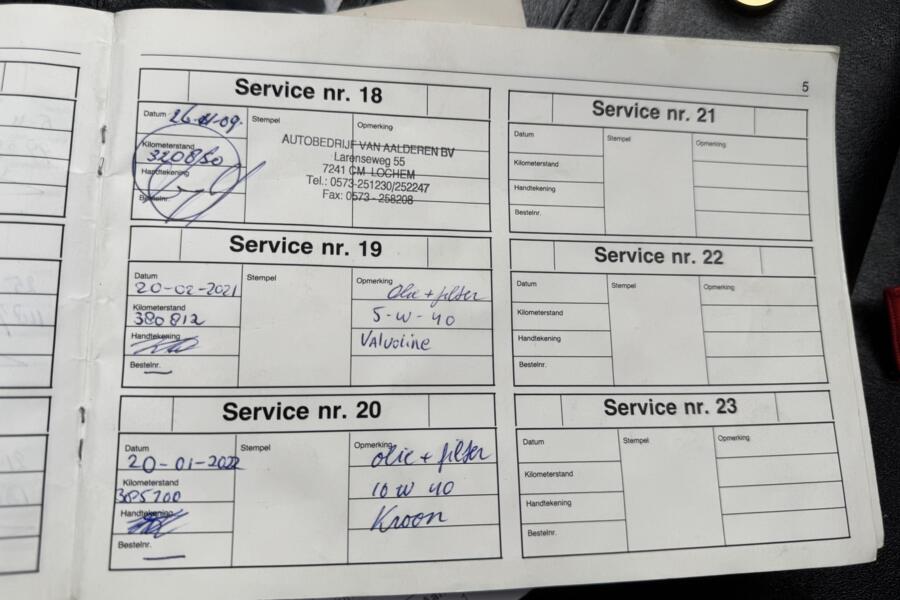 5
Service nr. 18
Datum 26-11-09.
Stempel
Opmerking
Kilometerstand
320850
Handtekening
Bestelnr.
AUTOBEDRIJF VAN AALDEREN BV
Larenseweg 55
7241 CM LOCHEM
Tel.: 0573-251230/252247
Fax: 0573 - 258208
Service nr. 19
Datum
20-02-2021
Kilometerstand
380812
Handtekening
Bestelnr.
Stempel
Opmerking
Olie + filter
5-W-40
Valvoline
Service nr. 20
Datum
20-01-2022
Kilometerstand
385700
Handtekening
Bestelnr.
Stempel
Opmerking
olie + filter
10 W 40
Kroon
Service nr. 21
Datum
Kilometerstand
Handtekening
Bestelnr.
Stempel
Opmerking
Service nr. 22
Datum
Kilometerstand
Handtekening
Bestelnr.
Stempel
Opmerking
Service nr. 23
Datum
Kilometerstand
Handtekening
Bestelnr.
Stempel
Opmerking